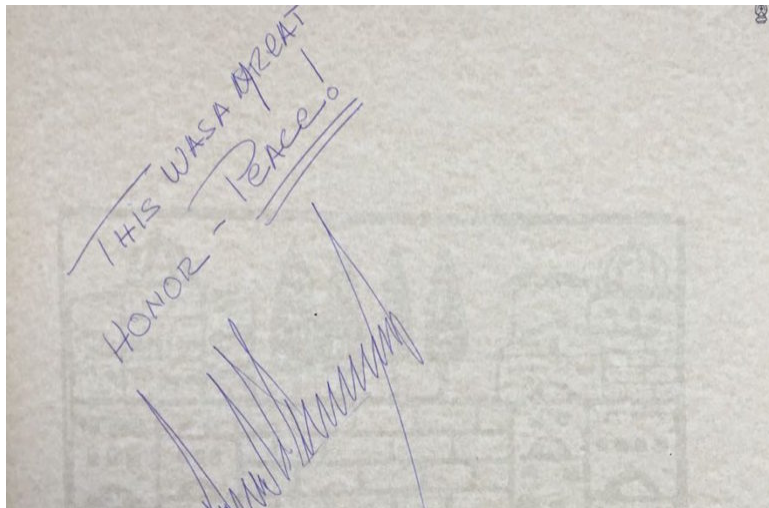 THIS WAS A GREAT
HONOR - PEACE!